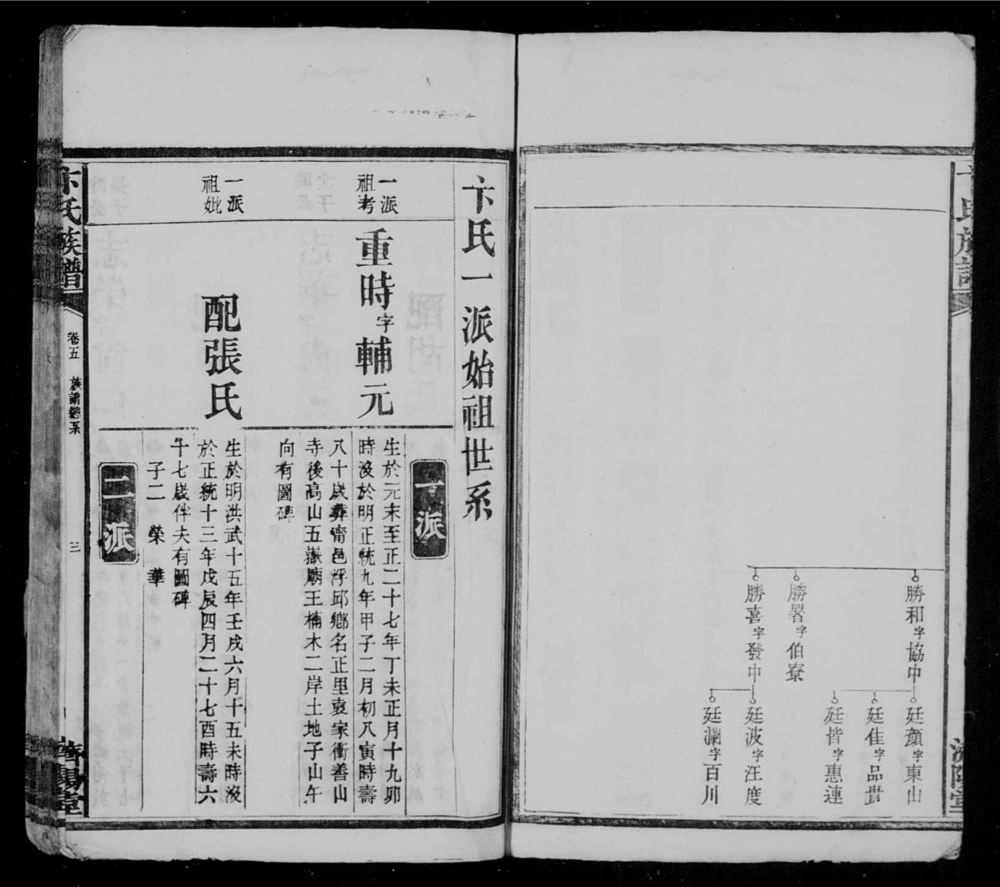 卞氏族譜
勝和字協中
廷顏字東山
廷佳字品貴
廷楷字惠連
勝畧字伯寮
勝喜字發中
廷波字汪度
廷瀾字百川
濟陽堂
卞氏一派始祖世系
一派
一派祖考
重時字輔元
生於元末至正二十七年丁未正月十九卯
時沒於明正統九年甲子二月初八寅時壽
八十歲葬甯邑浮邱鄉名正里袁家衝善山
寺後高山五嶽廟王楠木二岸土地子山午
向有圖碑
一派祖妣
配張氏
生於明洪武十五年壬戌六月十五未時沒
於正統十三年戊辰四月二十七酉時壽六
十七歲伴夫有圖碑
子二 榮 華
二派
卞氏族譜
卷五 族譜總系
三
濟陽堂